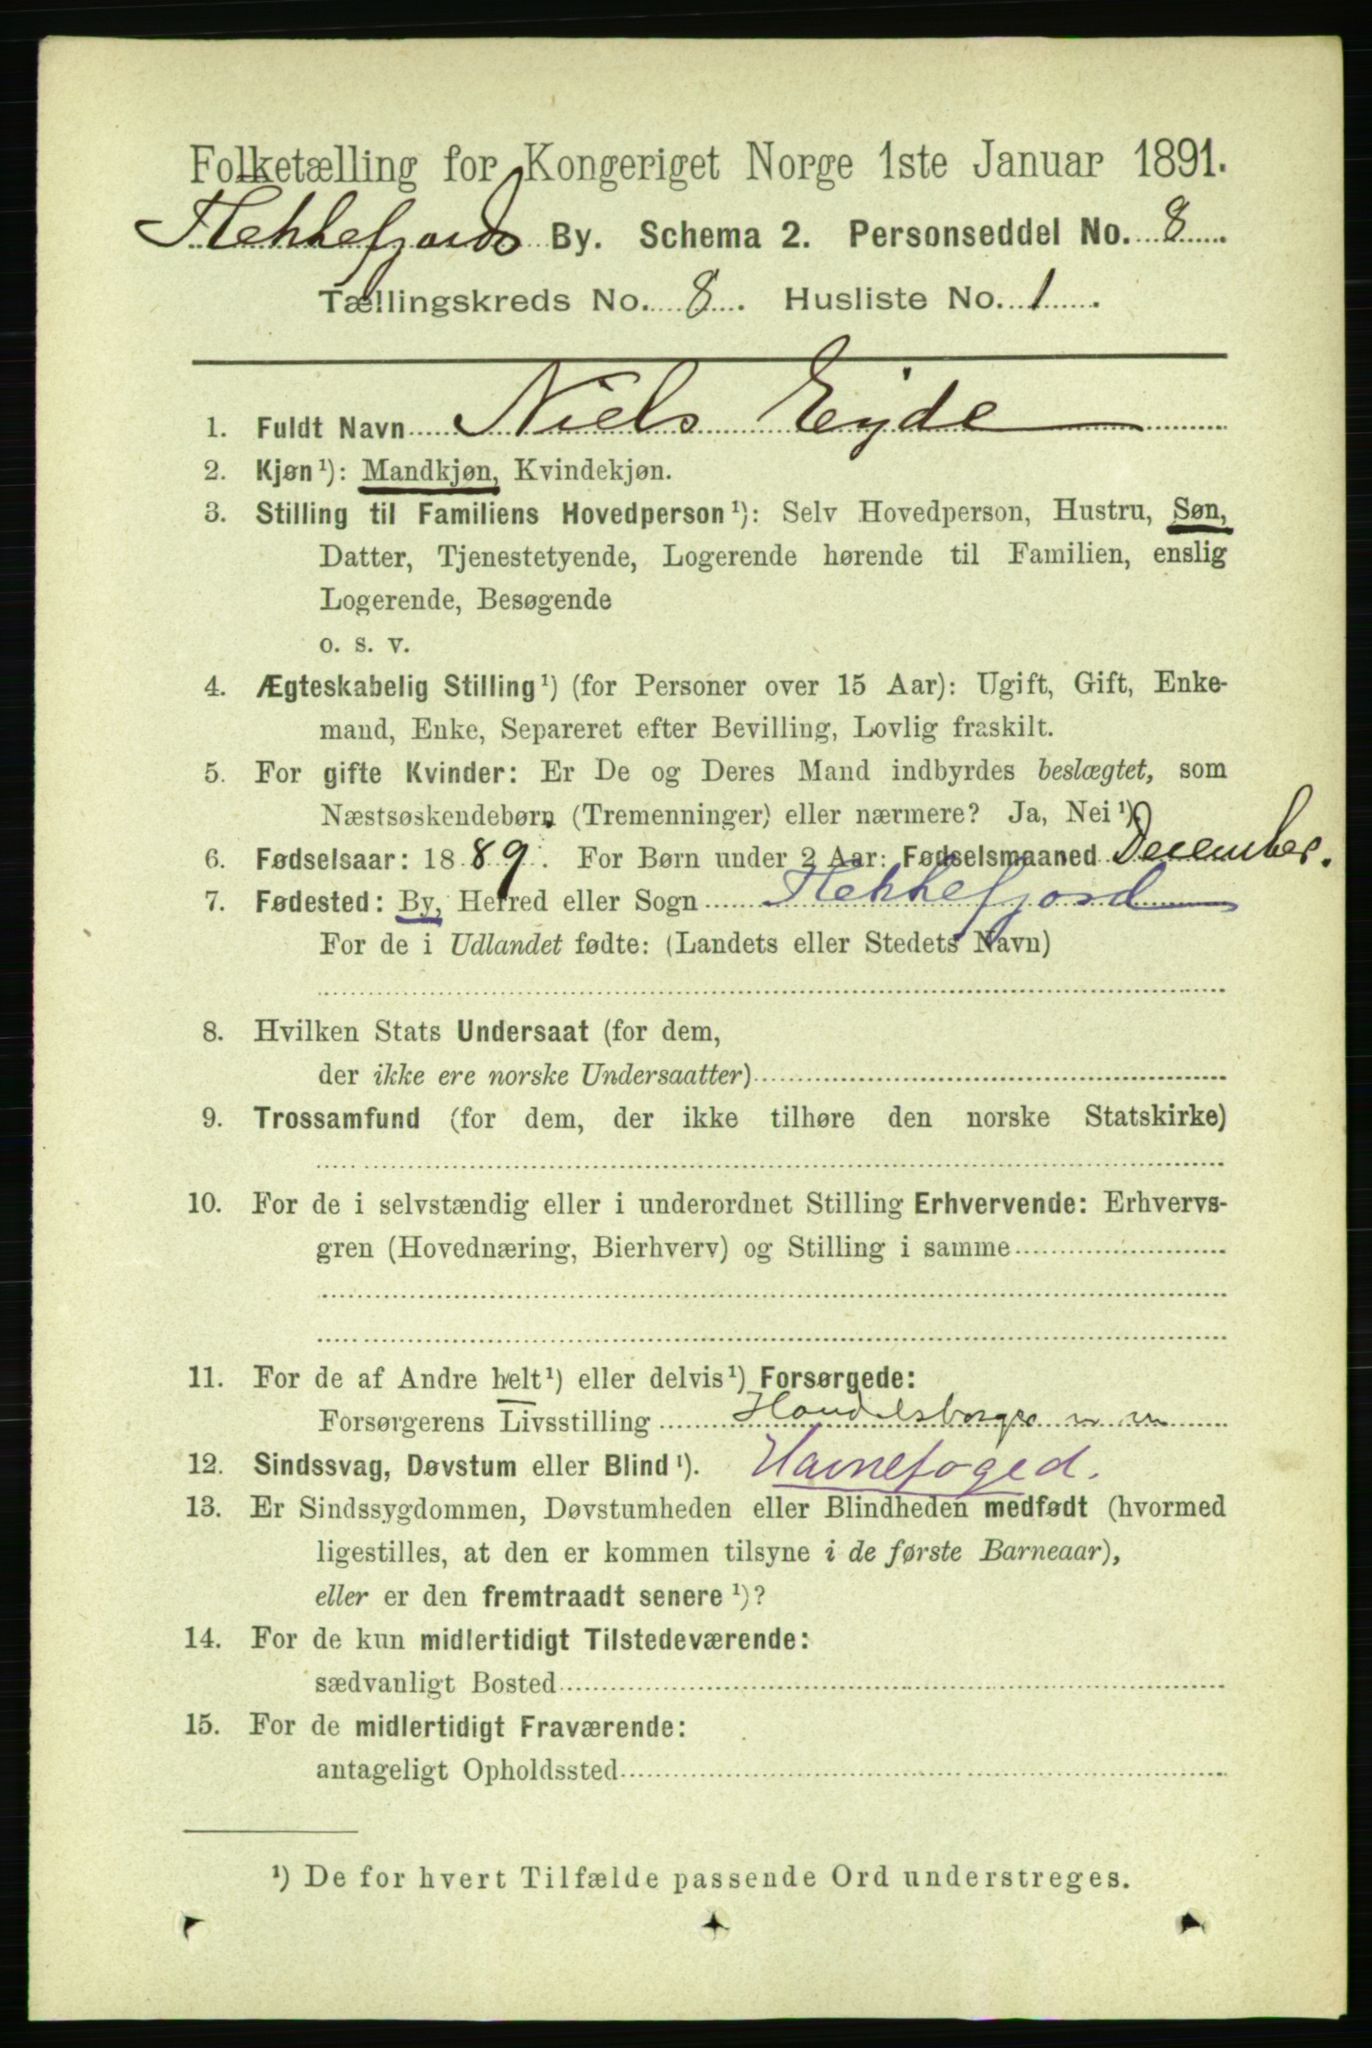 Folketælling for Kongeriget Norge 1ste Januar 1891.
Flekkefjords By. Schema 2. Personseddel No. 8
Tællingskreds No. 8. Husliste No. 1.
1. Fuldt Navn Niels Eyde
2. Kjøn¹): Mandkjøn, Kvindekjøn.
3. Stilling til Familiens Hovedperson¹): Selv Hovedperson, Hustru, Søn,
Datter, Tjenestetyende, Logerende hørende til Familien, enslig
Logerende, Besøgende
o. s. v.
4. Ægteskabelig Stilling¹) (for Personer over 15 Aar): Ugift, Gift, Enke-
mand, Enke, Separeret efter Bevilling, Lovlig fraskilt.
5. For gifte Kvinder: Er De og Deres Mand indbyrdes beslægtet, som
Næstsøskendebørn (Tremenninger) eller nærmere? Ja, Nei¹)
6. Fødselsaar: 1889. For Børn under 2 Aar: Fødselsmaaned December.
7. Fødested: By, Herred eller Sogn Flekkefjord
For de i Udlandet fødte: (Landets eller Stedets Navn)
8. Hvilken Stats Undersaat (for dem,
der ikke ere norske Undersaatter)
9. Trossamfund (for dem, der ikke tilhøre den norske Statskirke)
10. For de i selvstændig eller i underordnet Stilling Erhvervende: Erhvervs-
gren (Hovednæring, Bierhverv) og Stilling i samme
11. For de af Andre helt¹) eller delvis¹) Forsørgede:
Forsørgerens Livsstilling
12. Sindssvag, Døvstum eller Blind¹). Havnefoged.
13. Er Sindssygdommen, Døvstumheden eller Blindheden medfødt (hvormed
ligestilles, at den er kommen tilsyne i de første Barneaar),
eller er den fremtraadt senere¹)?
14. For de kun midlertidigt Tilstedeværende:
sædvanligt Bosted
15. For de midlertidigt Fraværende:
antageligt Opholdssted
¹) De for hvert Tilfælde passende Ord understreges.